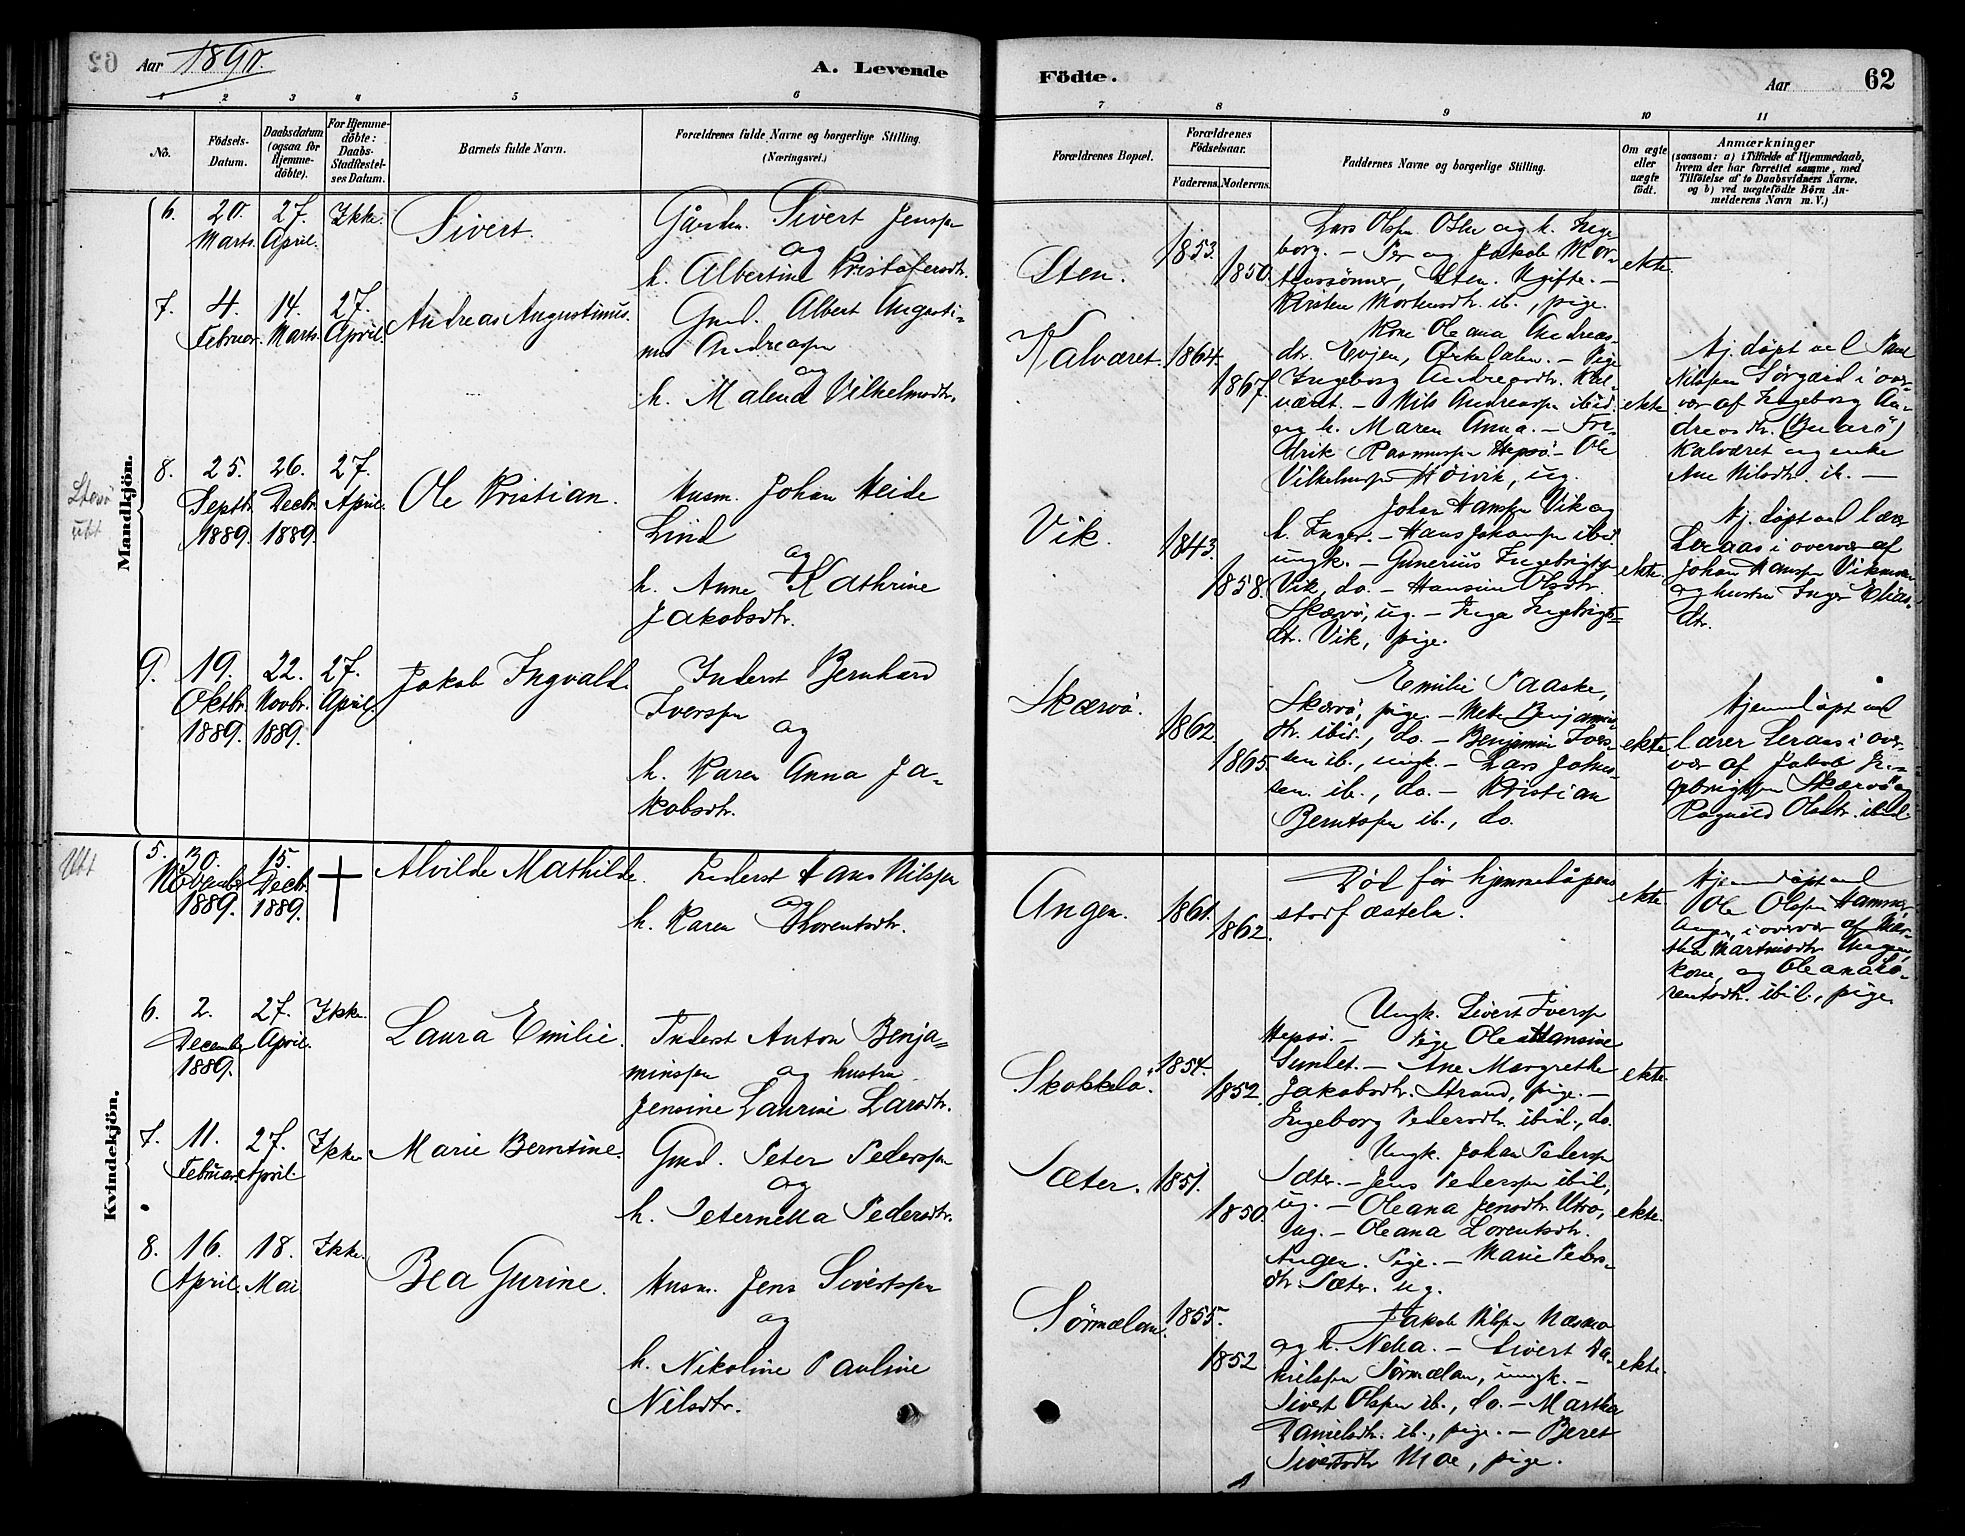 Aar 1890. A. Levende Födte. Aar 62
1 2 3 4 5 6 7 8 9 10 11
No.
Födsels-
Datum.
Daabsdatum
(ogsaa for
Hjemme-
döbte).
For Hjemme-
döbte:
Daabs-
Stadfæstel-
ses Datum.
Barnets fulde Navn.
Forældrenes fulde Navne og borgerlige Stilling.
(Næringsvei.)
Forældrenes Bopæl.
Forældrenes
Födselsaar.
Faderens. Moderens.
Faddernes Navne og borgerlige Stilling.
Om ægte
eller
uægte
födt.
Anmærkninger
(saasom: a) i Tilfælde af Hjemmedaab,
hvem der har forrettet samme, med
Tilföielse af to Daabsvidners Navne,
og b) ved uægtefödte Börn An-
melderens Navn m. V.)
Mandkjön.
6.
20.
Marts.
27.
April.
Ikke.
Sivert.
Gårdm. Sivert Jenssen
og
h. Albertine Kristofersdtr.
Sten.
1853.
1850.
Lars Olsen Osen og h. Inge
borg. - Per og Jakob Mor-
tenssönner, Sten. Ugifte. -
Kirsten Mortensdtr. ib., pige.
ekte.
7.
4.
Februar.
14.
Marts.
27.
April.
Andreas Augustinus.
Gmd. Albert Augusti-
nus Andreassen
og
h. Malena Vilhelmsdtr.
Kalværet.
1864.
1867.
Kone Oleana Andreas-
dtr. Evjen, Örkedalen. - Pige
Ingeborg Andreasdtr. Kal-
været. - Nils Andreassen ibid.
og h. Maren Anna. - Fre-
drik Rasmussen Hepsö. - Ole
Vilhelmsen Höivik, ug.
ekte.
Hj. döpt ved Paul
Nilssen Sörgård i over-
vær af Ingeborg An-
dreasdtr.
Kalværet og enke
Ane Nilsdtr. ib. -
8.
25.
Septbr.
1889.
26.
Decbr.
1889.
27.
April.
Ole Kristian.
Husm. Johan Heide
Lind
og
h. Anne Kathrine
Jakobsdtr.
Vik.
1843.
1858.
Johan Hanssen Vik og
h. Inger. - Hans Johansen ibid.
ungk. - Gunerius Ingebrigtsen
Vik, do. - Hansine Olsdtr.
Skærvö, ug. - Inga Ingebrigts-
dtr. Vik, pige.
ekte.
Hj. döpt ved lærer
Leraas i overvær af
Johan Hanssen Vik
og hustru Inger Elias-
dtr.
9.
19.
Oktbr.
1889.
22.
Novbr.
1889.
27.
April.
Jakob Ingvald.
Inderst Bernhard
Iverssen
og
h. Karen Anna Ja-
kobsdtr.
Skærvö.
1862.
1865.
Emilie Paaske,
Skærvö, pige. - Meta Benjamins-
dtr. ibid., do. - Benjamin Ivers-
sen ib., ungk. - Lars Johans-
sen. ib., do. - Kristian
Berntssen ib., do.
ekte.
Hjemmedöpt ved
lærer Leraas i over-
vær af Jakob In-
gebrigtsen Skærvö og
Ragnild Olsdtr. ibid.
Kvindekjön.
5.
30.
November
1889.
15.
Decbr.
1889.
Alvilde Mathilde.
Inderst Hans Nilssen
og
h. Karen Lorentsdtr.
Angen.
1861.
1862.
Död för hjemmedåpens
stadfæstelse.
ekte.
Hjemmedöpt ved
Ole Olssen Hammer,
Angen, i overvær af Mar-
tha Martinusdtr. Angen,
kone, og Oleana Lo-
rentsdtr. ibid., pige.
6.
2.
December
1889.
27.
April.
Ikke.
Laura Emilie.
Inderst Anton Benja-
minssen og hustru
Jensine Laurine Larsdtr.
1854.
1852.
Ungk. Sivert Iverssen
Hepsö. - Pige Olea Hansine
Sumlet. - Ane Margrethe
Jakobsdtr. Strand, pige. -
Ingeborg Pedersdtr. ibid., do.
ekte.
7.
11.
Februar.
27.
April.
Ikke.
Marie Berntine.
Gmd. Peter Pederssen
og
h. Peternella Pedersdtr.
Sæter.
1851.
1850.
Ungk. Johan Pederssen
Sæter. - Jens Pederssen ibid.,
ug. - Oleana Jensdtr. Utvo,
ug. - Oleana Lorentsdtr.
Angen. Pige. - Marie Peders-
dtr. Sæter. ug.
ekte.
8.
16.
April.
18.
Mai
Ikke.
Bea Gurine.
Husm. Jens Sivertssen
og
h. Nikoline Pauline
Nilsdtr.
Sörmælan.
1855.
1852.
Jakob Nilssen Næsmo
og h. Nella. - Sivert Da-
nielssen Sörmælan, ungk. -
Sivert Olssen ib., do. - Martha
Danielsdtr. ib., pige. - Beret
Sivertsdtr Moe, pige.
ekte.